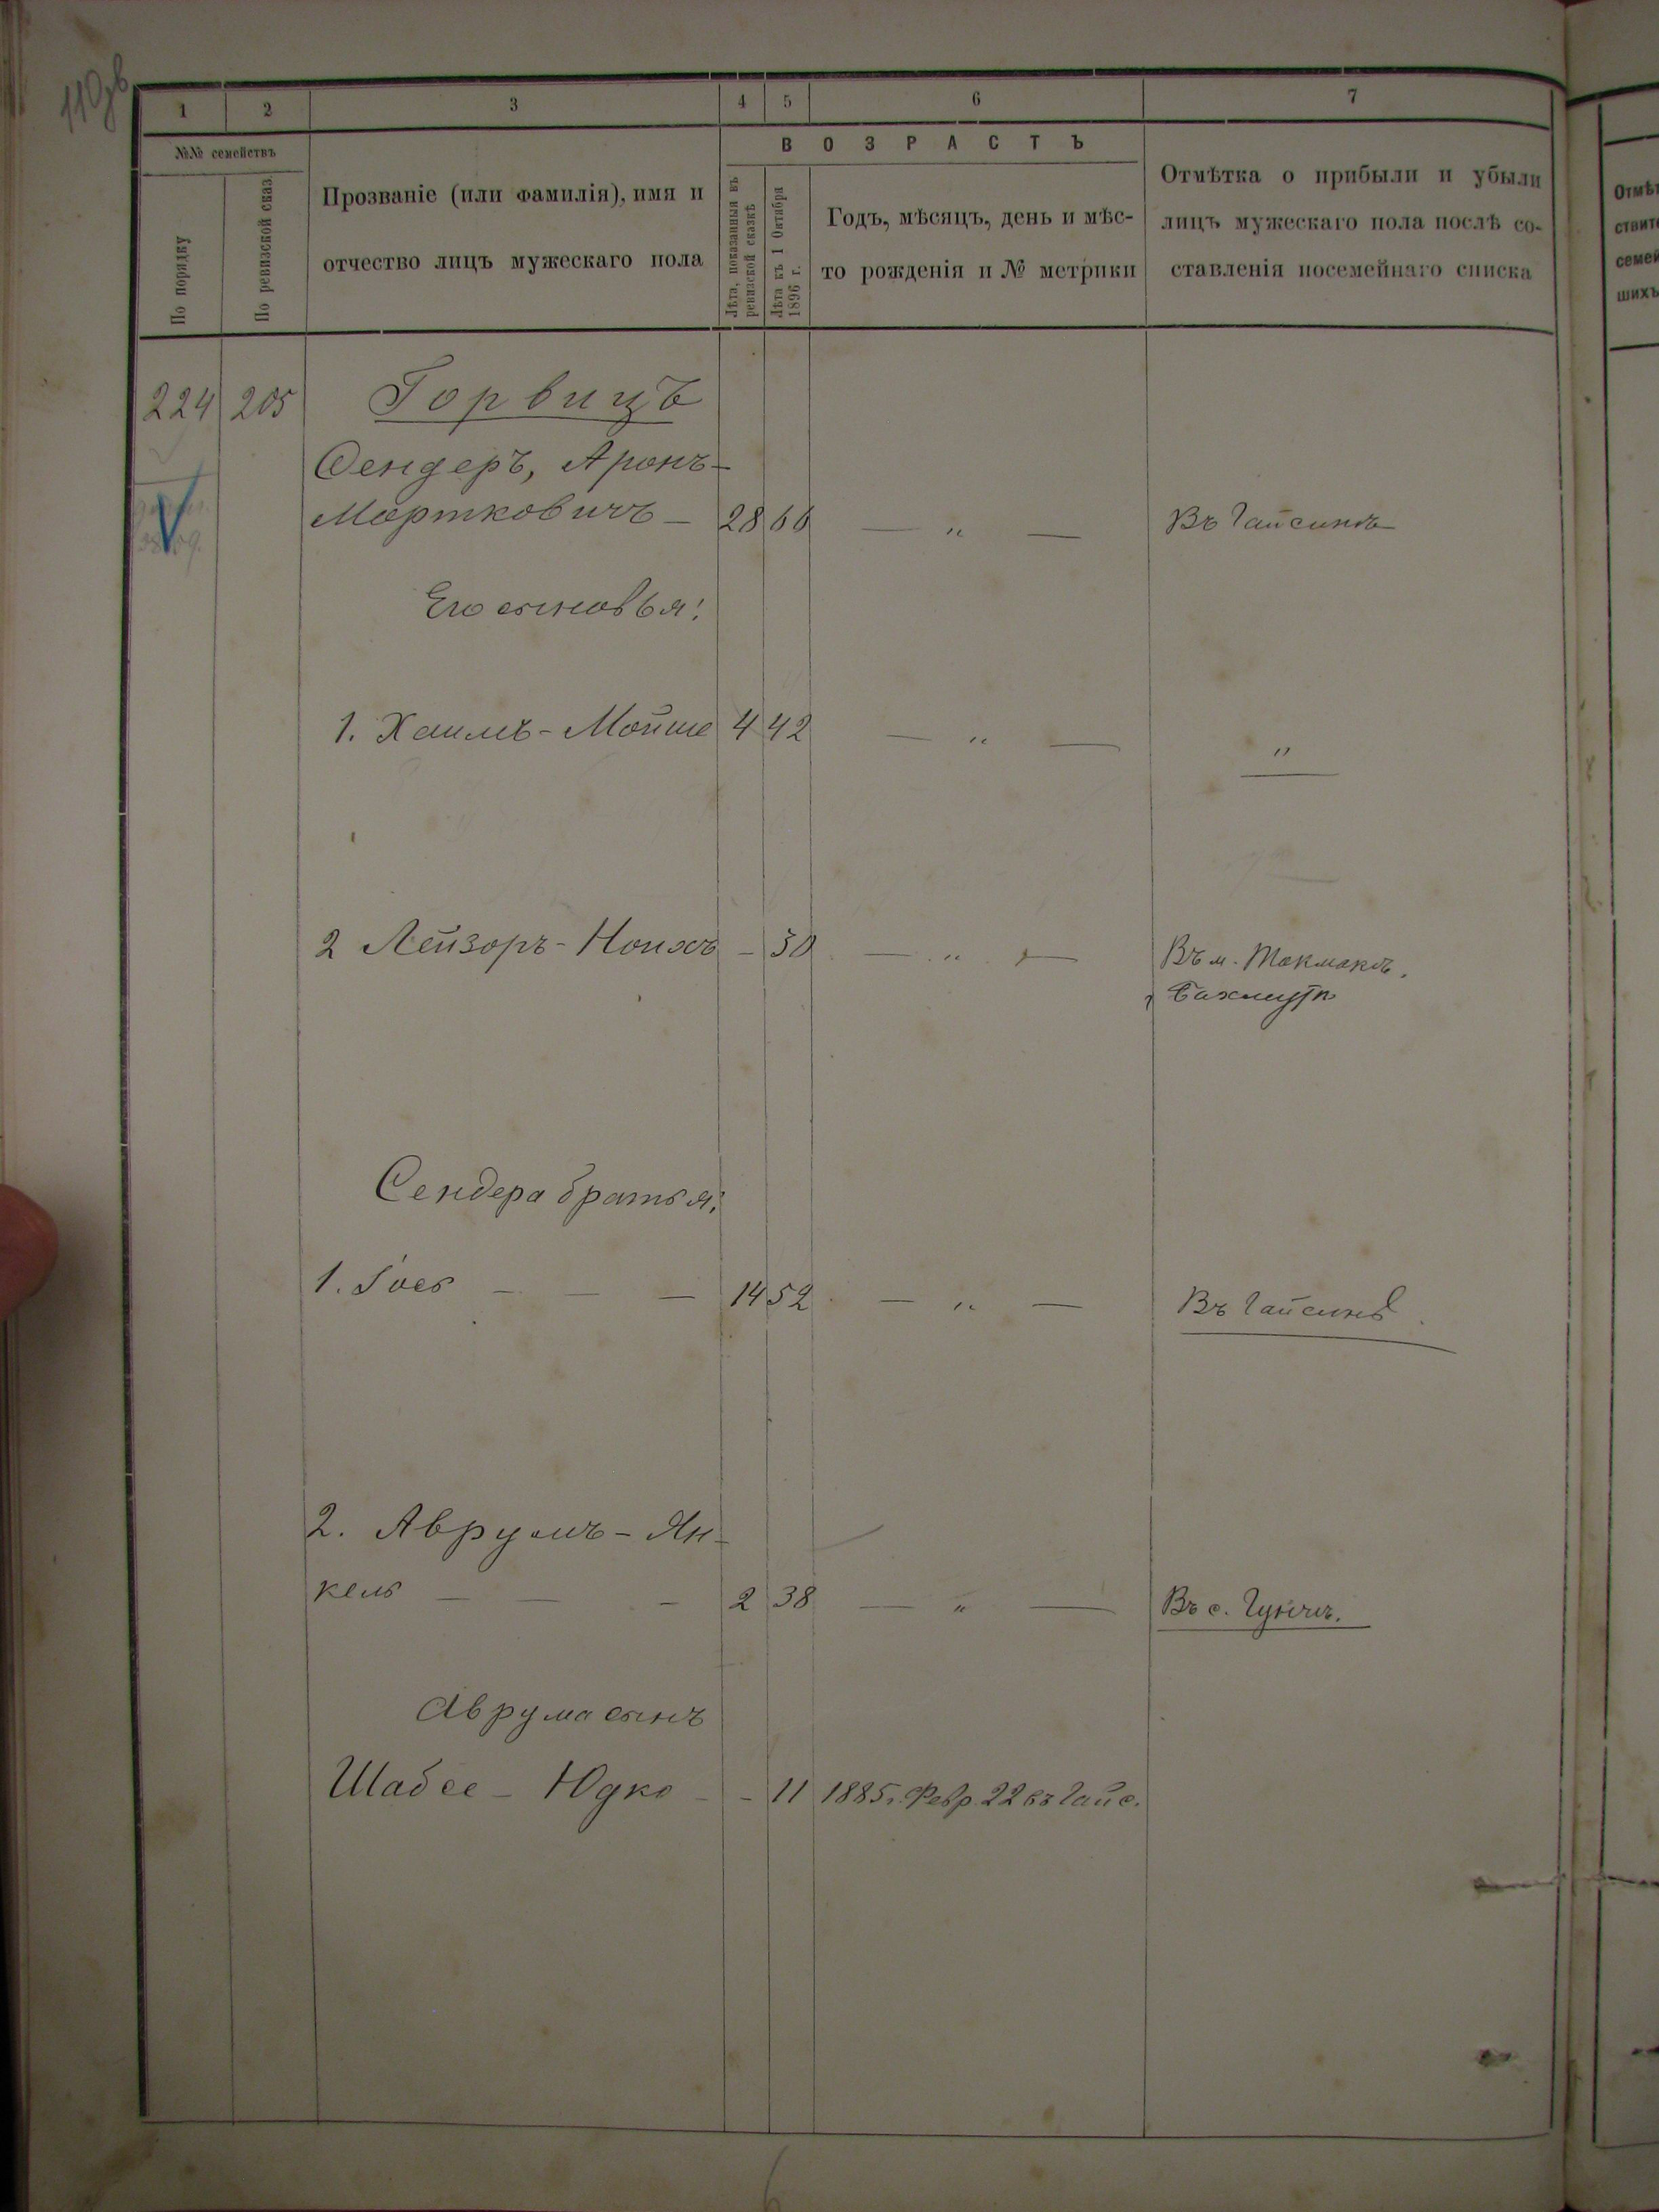 110 об
1 2 3 4 5 6 7
№№ семействъ
По порядку
По ревизской сказ.
Прозваніе (или фамилія), имя и
отчество лицъ мужескаго пола
ВОЗРАСТЪ
Лѣта, показанныя въ
ревизской сказкѣ
Лѣта къ 1 Октября
1896 г.
Годъ, мѣсяцъ, день и мѣс-
то рожденія и № метрики
Отмѣтка о прибыли и убыли
лицъ мужескаго пола послѣ со-
ставленія посемейнаго списка
224 205 Горвицъ
Сендеръ, Аронъ-
Мортковичъ — 28 66 — „ — Въ Гайсинѣ
Его сыновья:
1. Хаимъ-Мойше 4 42 — „ — „
2 Лейзоръ-Ноихъ — 30 — „ — Въ м. Токмакъ.
Бахмутъ
Сендера братья:
1. Іось — — — 14 52 — „ — Въ Гайсинѣ.
2. Аврумъ-Ян-
кель — — — 2 38 — „ — Въ с. Гунчъ.
Аврума сынъ
Шабсе-Юдко - - 11 1885 г. Февр. 22 въ Гайс.